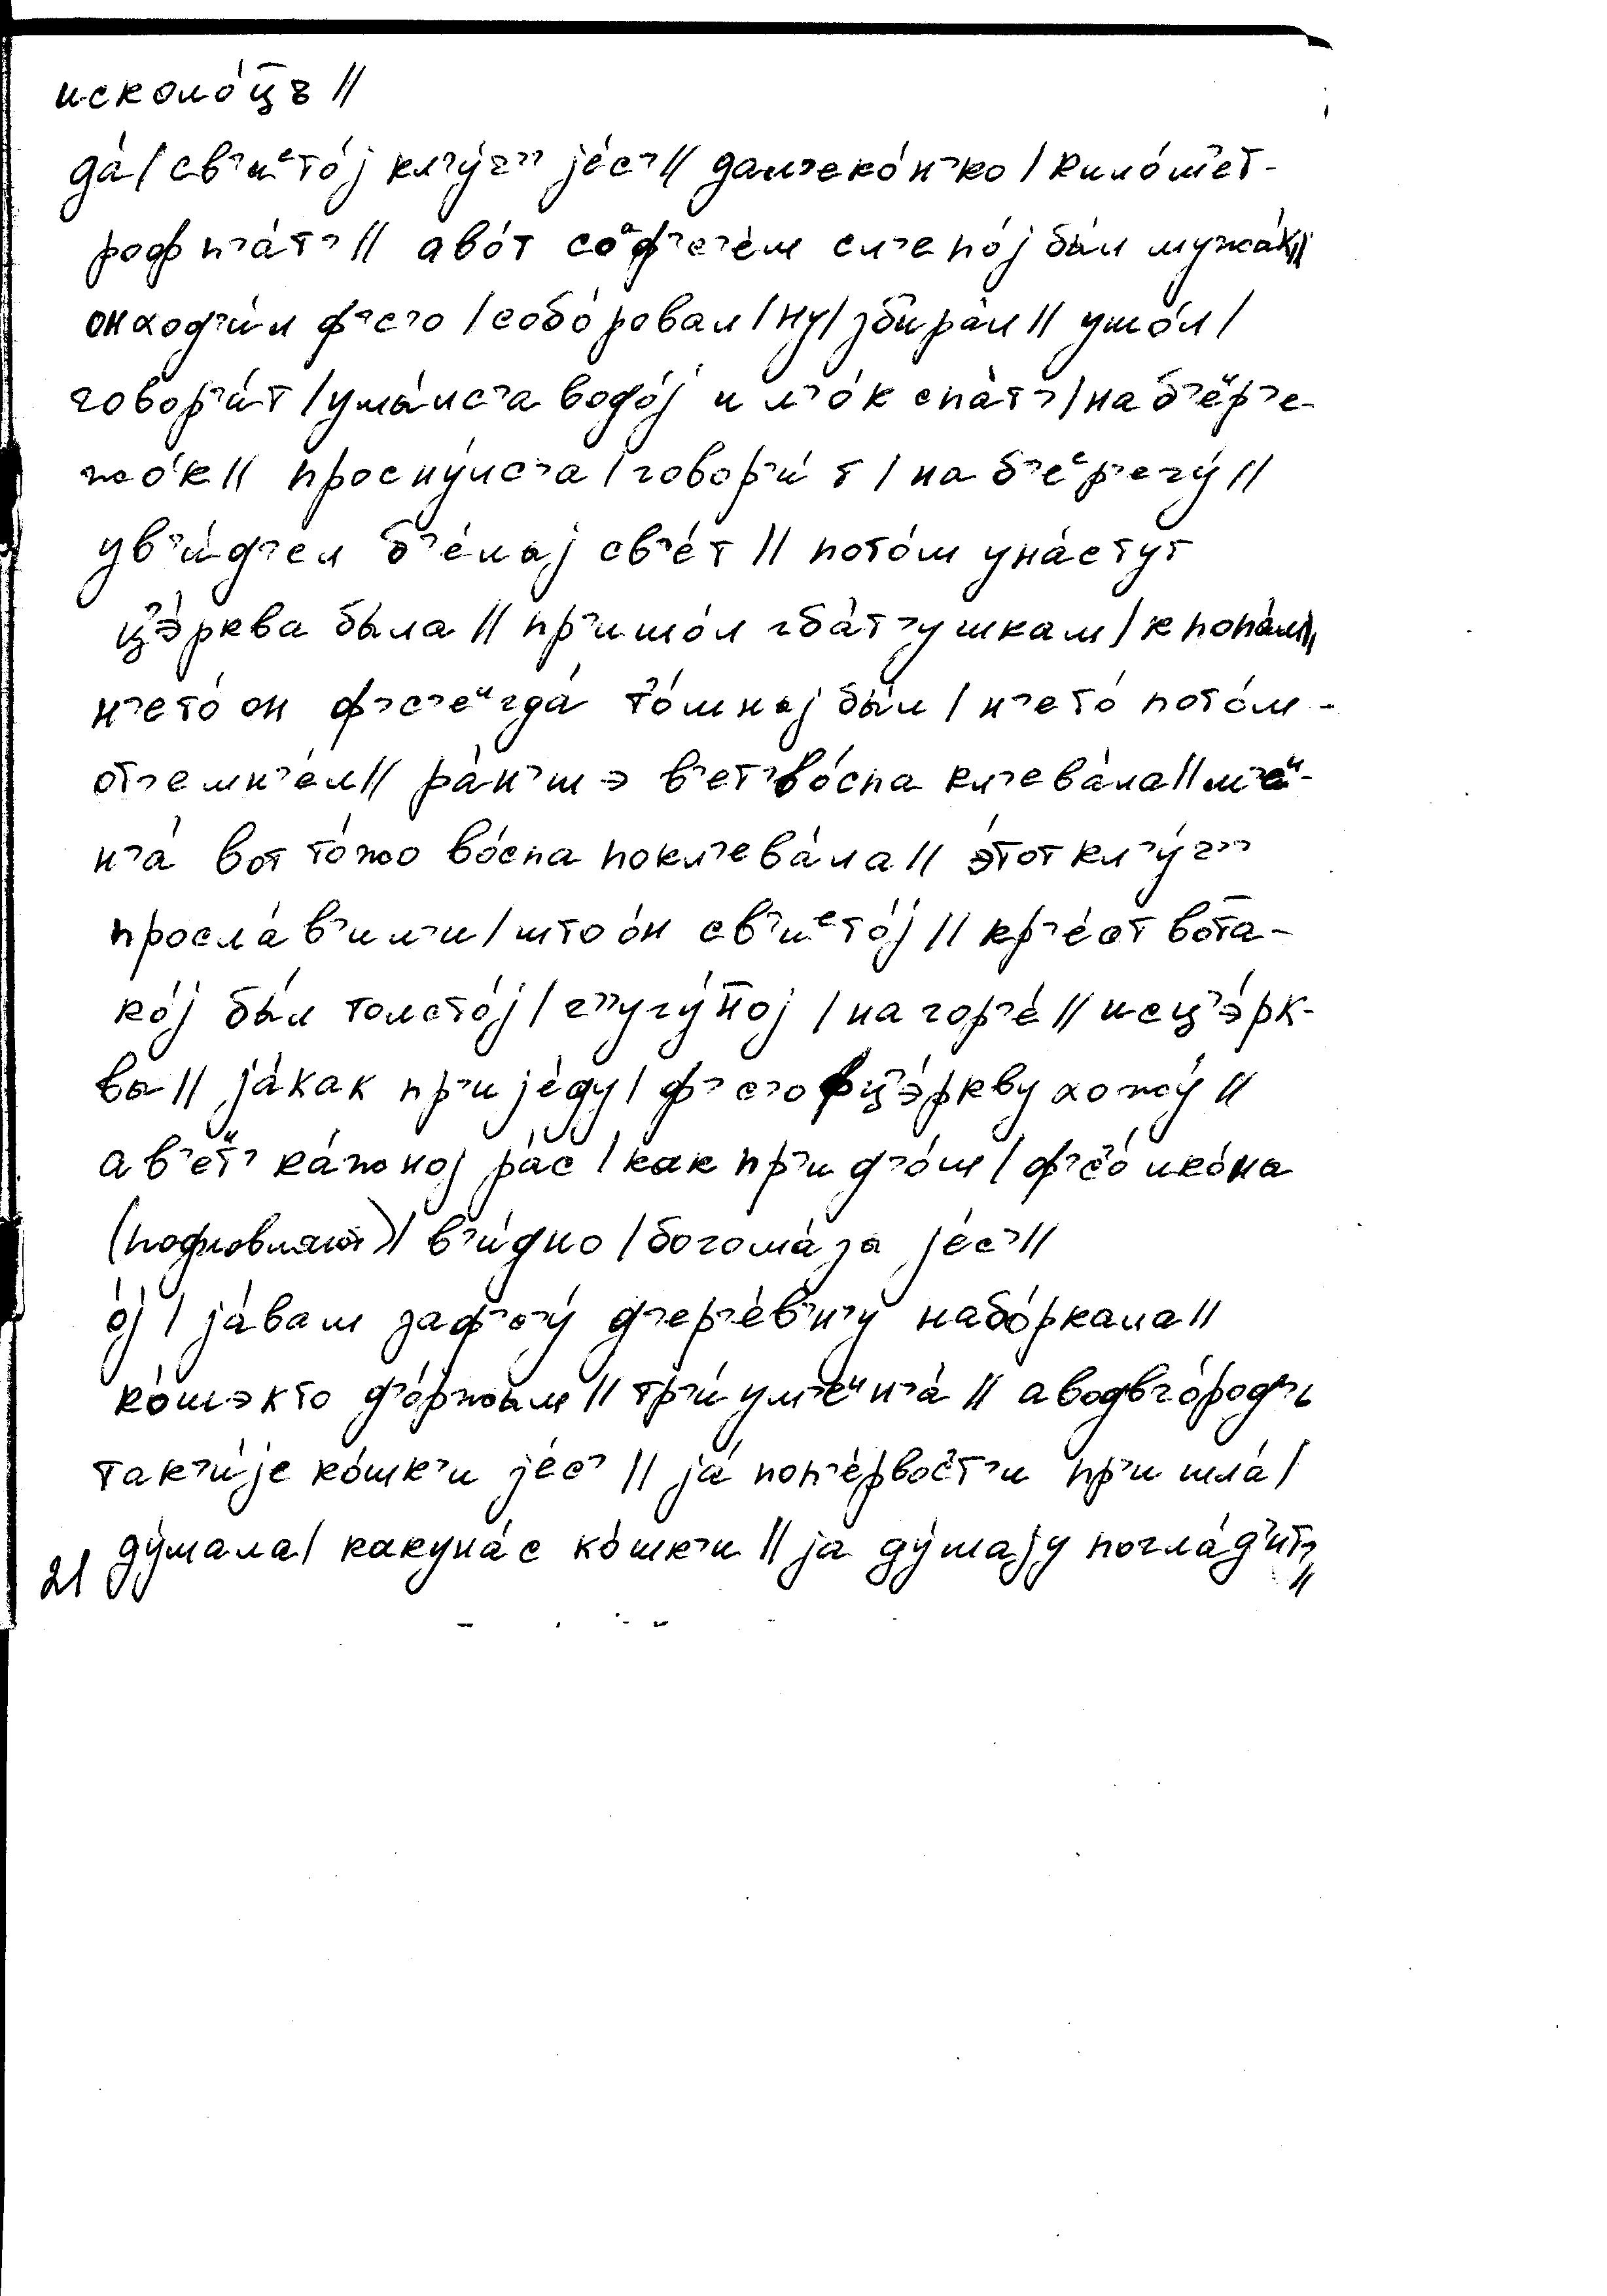 исколо́ц̅ъ //
да́ / св'и͏ᵉто́ј кл'у́ч'' је́с' // дал'око́н'ко / кило́м'ет-
роф п'а́т' // аво́т соᵃф'с'е́м сл'епо́ј бы́л мужы́к //
онход'и́л ф'с'о / собо́ровал / ну / збира́л // ушо́л /
говор'и́т / умы́лс'а водо́ј и л'о́к спа́т' / на б'еᵉр'е-
жо́к // просну́лс'а / говор'и́т / на б'еᵉр'егу́ //
ув'и́д'ел б'е́лај св'е́т // пото́м уна́стут
ц'э́рква была // пр'ишо́л гба́т'ушкам / к попа́м //
н'ето́ он ф'с'еᶦгда́ т'о́мнај бы́л / н'ето́ пото́м -
от'емн'е́л // ра́н'шэ в'ет' во́спа кл'ева́ла // м'еᶦ-
н'а́ вот то́жо во́спа покл'ева́ла // э́тот кл'у́ч''
просла́в'ил'и / што о́н св'иᵉто́ј // кр'е́ст вота-
ко́ј бы́л толсто́ј / ч''угу́н̅ој / на гор'е́ // исц'э́рк-
вы // ја́как пр'ије́ду / ф'с'о фц'э́ркву хожу́ //
а в'ет' ка́жној ра́с / как пр'ид'о́ш / ф'с'о́ ико́на
(подновляют) / в'и́дно / богома́зы је́с' //
о́ј / ја́вам заф'с'у́ д'ер'е́в'н'у набо́ркала //
ко́шэкто д'о́ржым // тр'и́ ум'еᶦн'а́ // аводвго́род'ь
так'и́је ко́шк'и је́с' // ја́ поп'е́рвос'т'и пр'ишла́ /
ду́мала / какуна́с ко́шк'и // ја ду́мају погла́д'ит' //
21